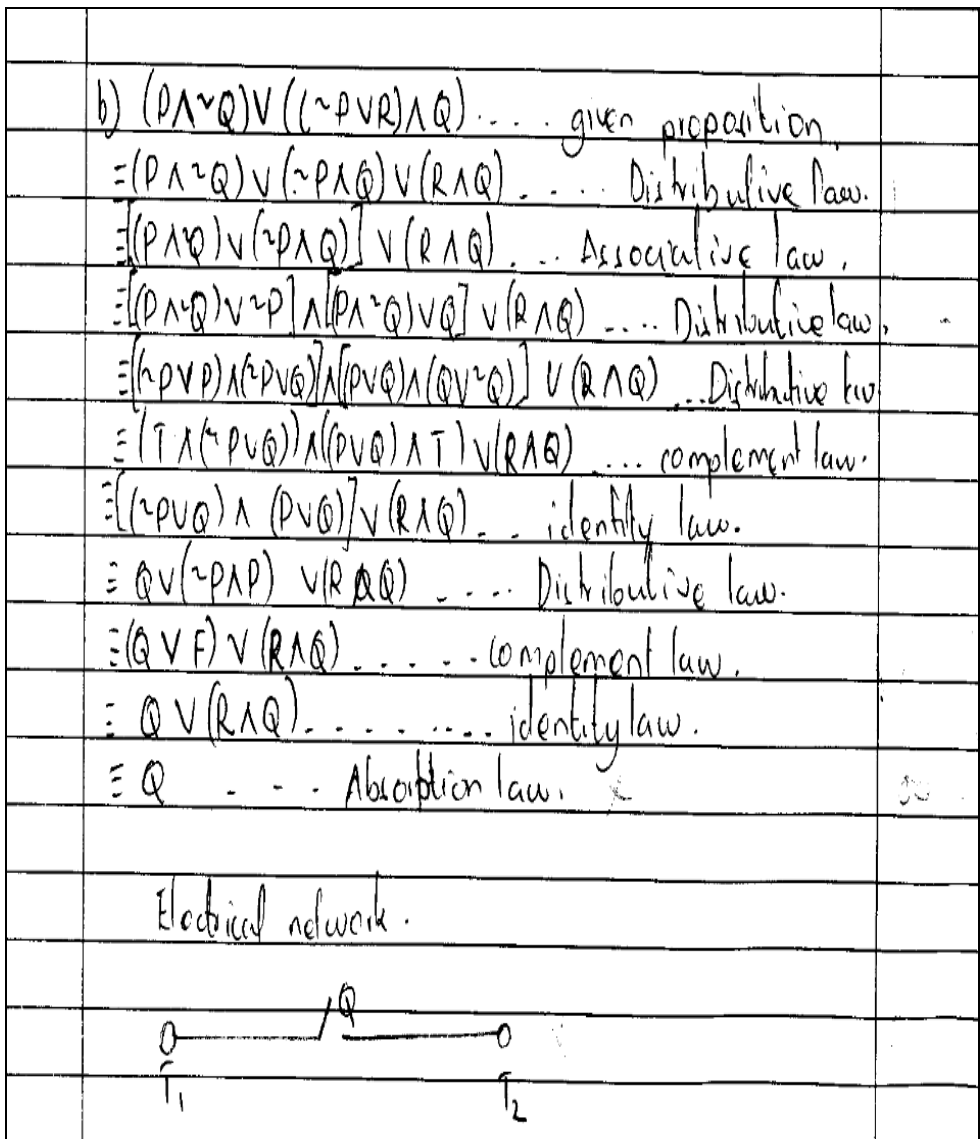 b) (P∧~Q)∨((~P∨R)∧Q) .... given proposition.
≡(P∧~Q)∨(~P∧Q)∨(R∧Q) ..... Distributive law.
≡[(P∧~Q)∨(~P∧Q)]∨(R∧Q) ... Associative law.
≡[(P∧~Q)∨~P]∧[P∧~Q)∨Q]∨(R∧Q) .... Distributive law.
≡[(~P∨P)∧(~P∨Q)]∧[(P∨Q)∧(Q∨~Q)]∨(R∧Q) ...Distributive law
≡(T∧(~P∨Q))∧((P∨Q)∧T)∨(R∧Q) .... complement law.
≡[(~P∨Q)∧(P∨Q)]∨(R∧Q) .. identity law.
≡Q∨(~P∧P)∨(R∧Q) .... Distributive law.
≡(Q∨F)∨(R∧Q) ...... complement law.
≡Q∨(R∧Q) ........ identity law.
≡Q ... Absorbtion law.
Electrical network.
Q
T₁ T₂